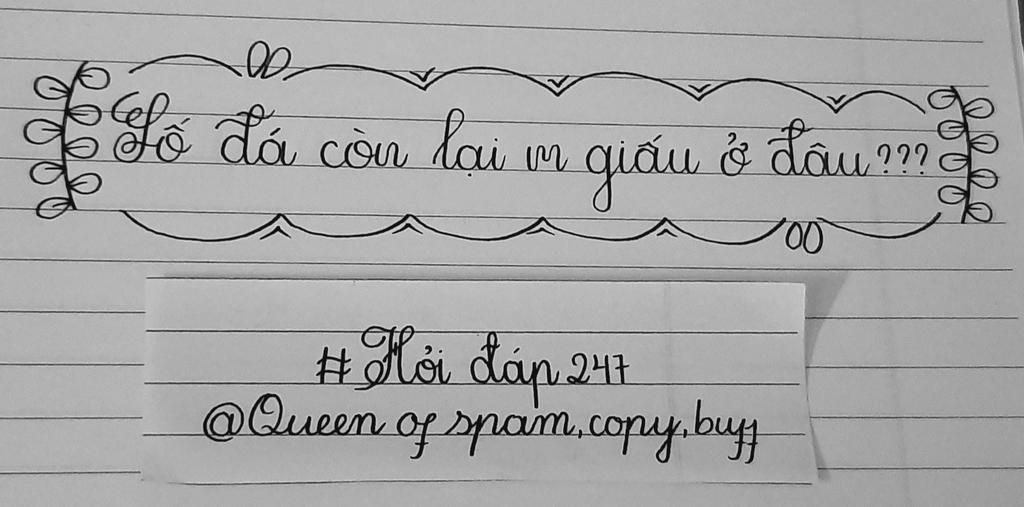 Số đá còn lại m giấu ở đâu???
#Hỏi đáp 247
@Queen of spam, copy, buff